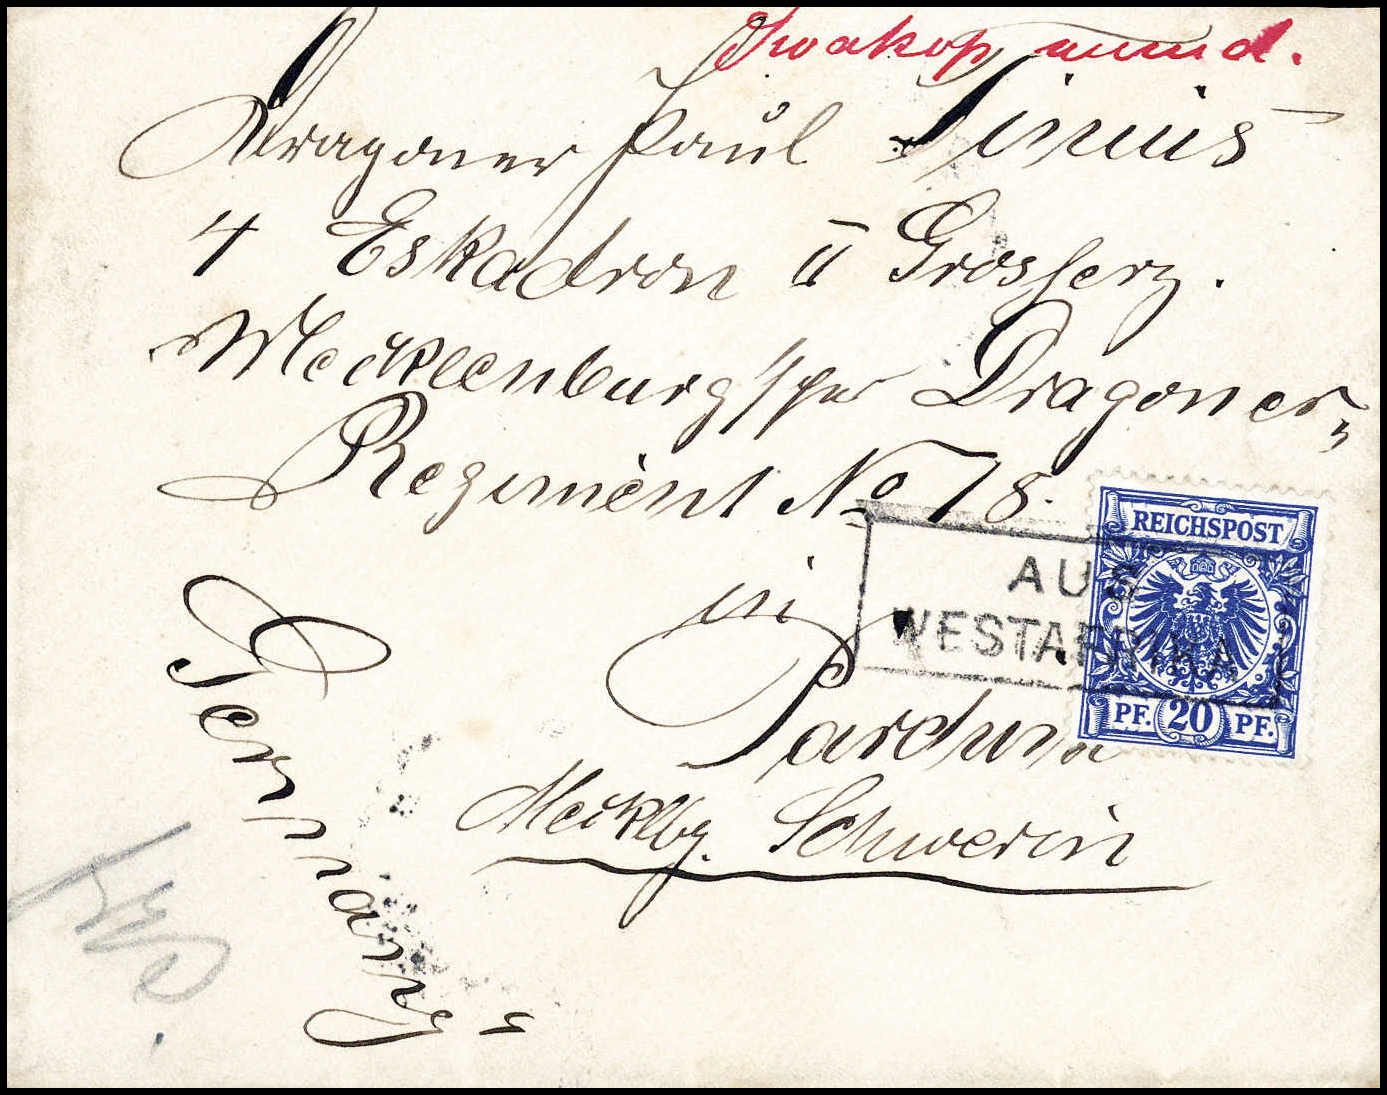 Swakopmund.
Dragoner Paul Tinius
4 Eskadron II Grossherz.
Mecklenburg'scher Dragoner-
Regiment No 18.
in
Parchim
Meckbg. Schwerin
Germany
REICHSPOST
PF. 20 PF.
AUS
WESTAFRIKA